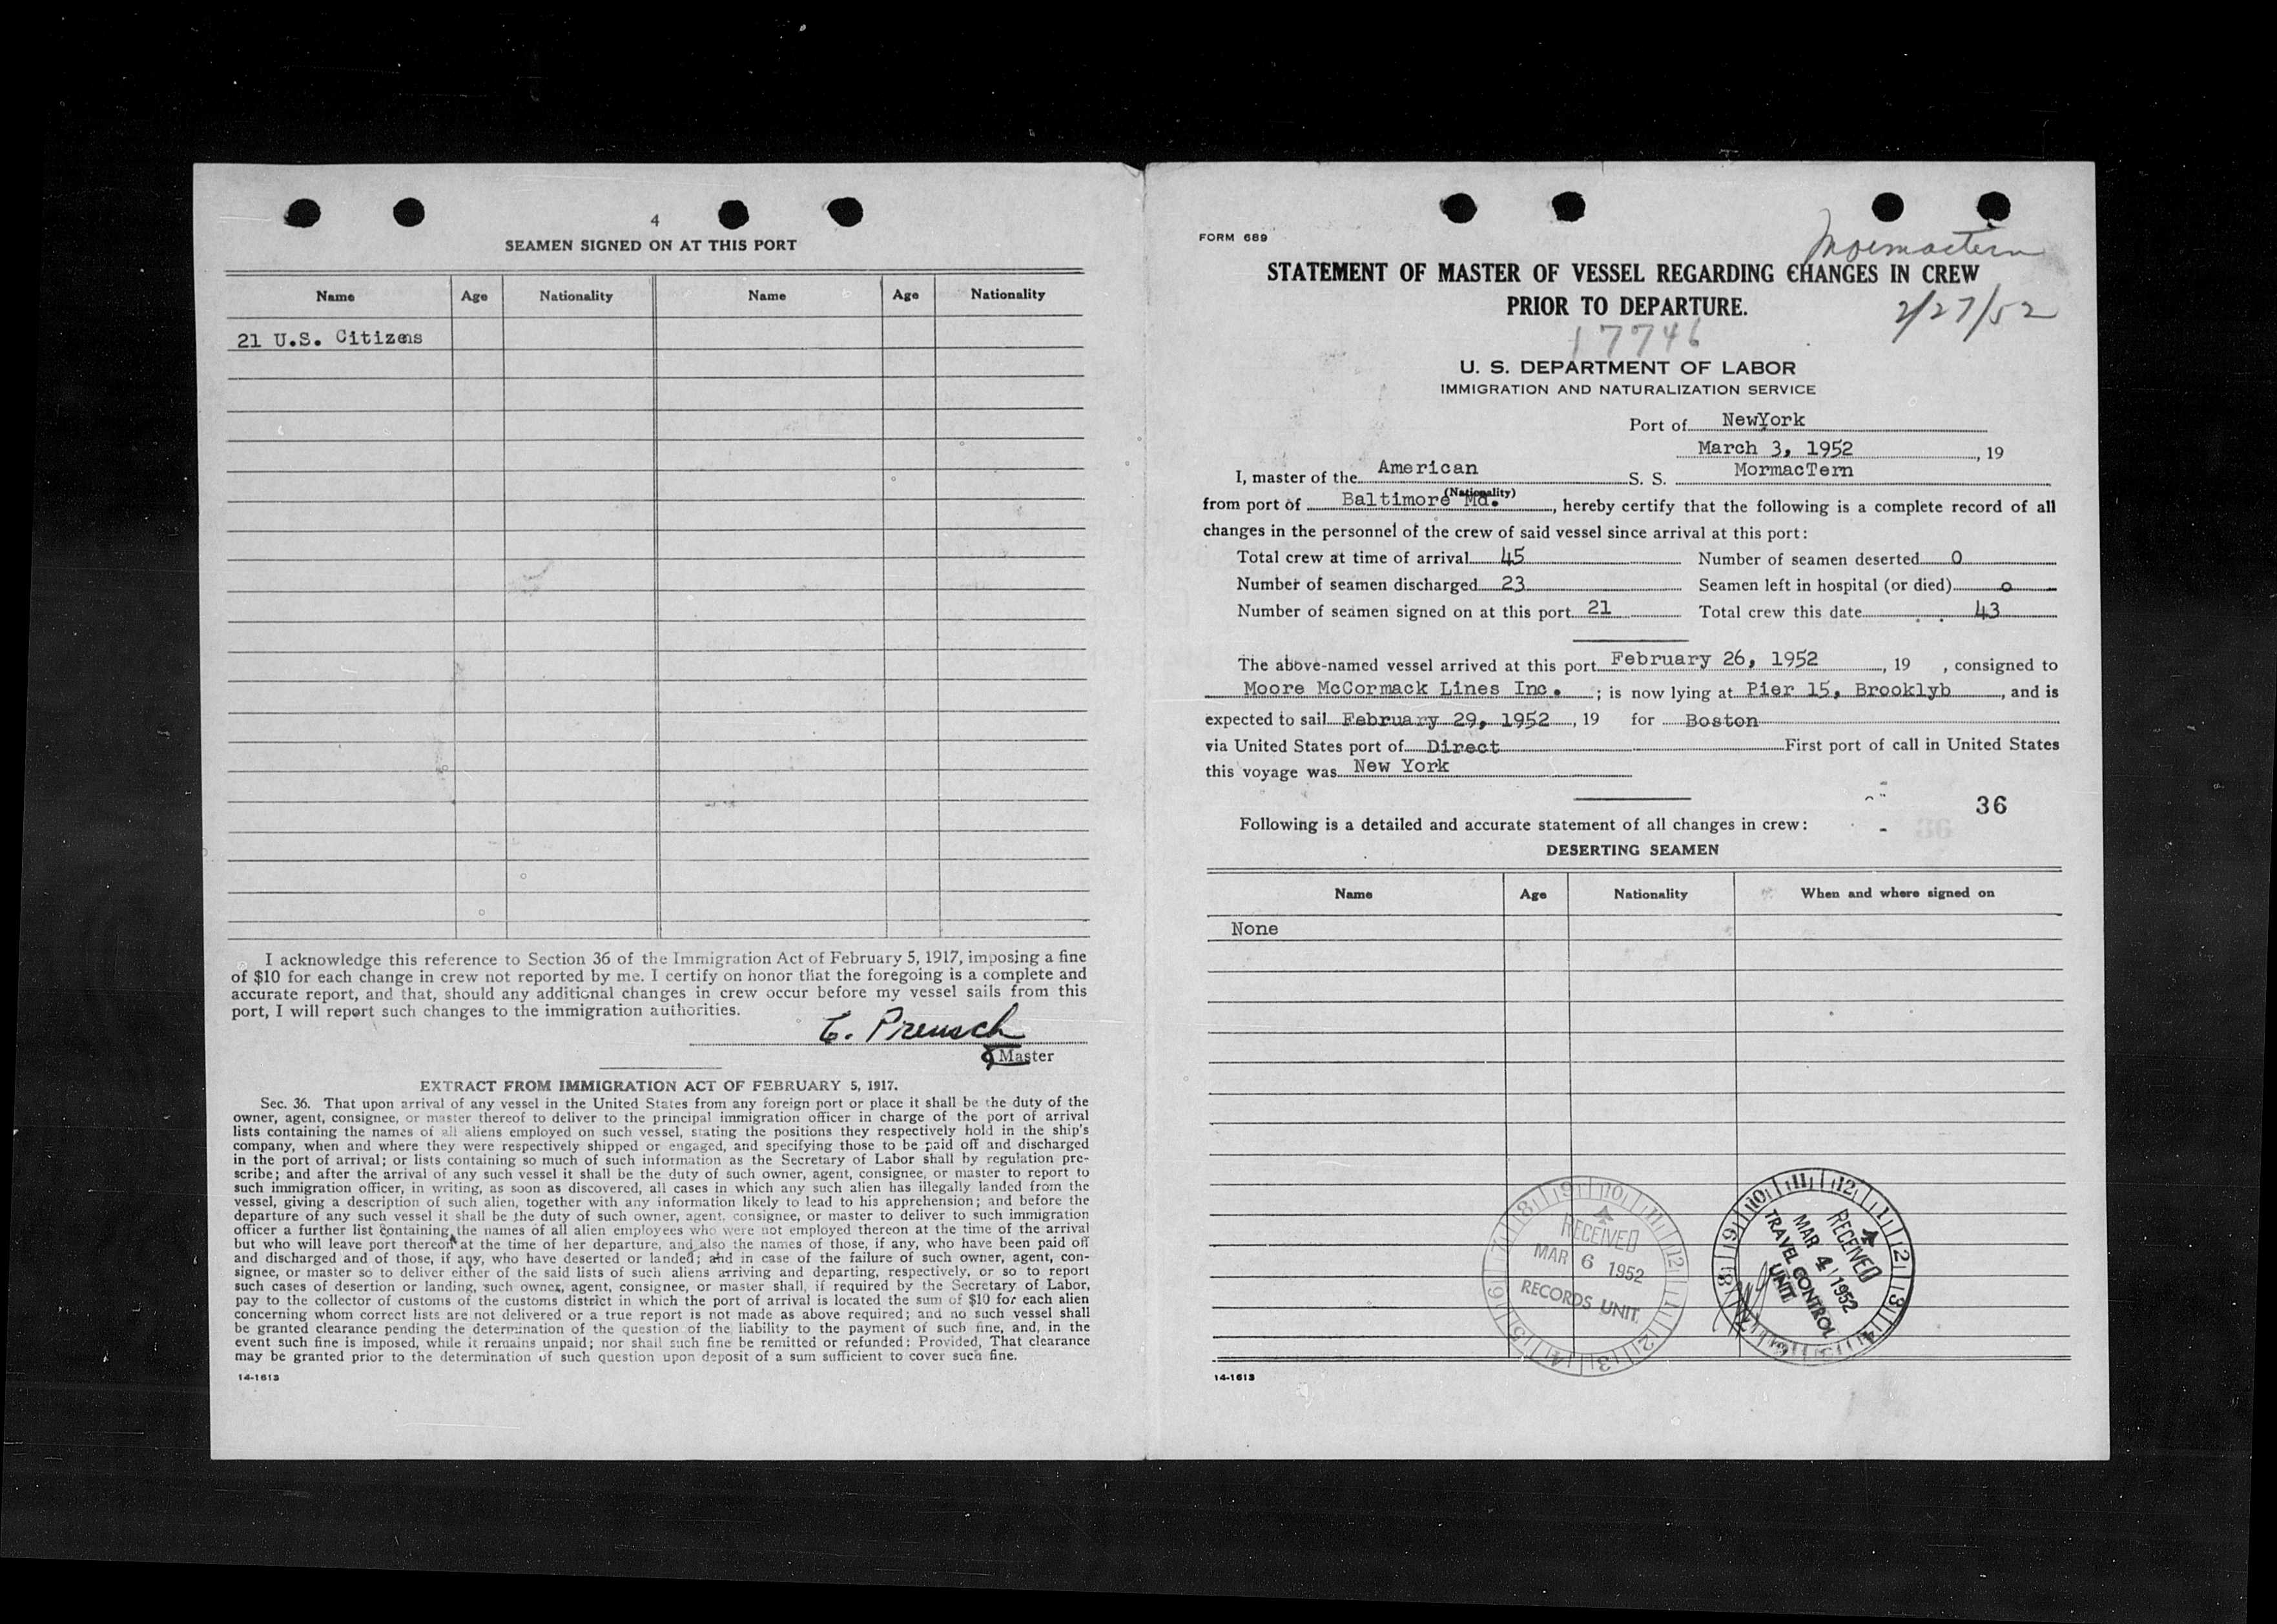 4
SEAMEN SIGNED ON AT THIS PORT
Name Age Nationality Name Age Nationality
21 U.S. Citizens
I acknowledge this reference to Section 36 of the Immigration Act of February 5, 1917, imposing a fine
of $10 for each change in crew not reported by me. I certify on honor that the foregoing is a complete and
accurate report, and that, should any additional changes in crew occur before my vessel sails from this
port, I will report such changes to the immigration authorities.
Preusch
Master
EXTRACT FROM IMMIGRATION ACT OF FEBRUARY 5, 1917.
Sec. 36. That upon arrival of any vessel in the United States from any foreign port or place it shall be the duty of the
owner, agent, consignee, or master thereof to deliver to the principal immigration officer in charge of the port of arrival
lists containing the names of all aliens employed on such vessel, stating the positions they respectively hold in the ship's
company, when and where they were respectively shipped or engaged, and specifying those to be paid off and discharged
in the port of arrival; or lists containing so much of such information as the Secretary of Labor shall by regulation pre-
scribe; and after the arrival of any such vessel it shall be the duty of such owner, agent, consignee, or master to report to
such immigration officer, in writing, as soon as discovered, all cases in which any such alien has illegally landed from the
vessel, giving a description of such alien, together with any information likely to lead to his apprehension; and before the
departure of any such vessel it shall be the duty of such owner, agent, consignee, or master to deliver to such immigration
officer a further list containing the names of all alien employees who were not employed thereon at the time of the arrival
but who will leave port thereon at the time of her departure, and also the names of those, if any, who have been paid off
and discharged and of those, if any, who have deserted or landed; and in case of the failure of such owner, agent, con-
signee, or master so to deliver either of the said lists of such aliens arriving and departing, respectively, or so to report
such cases of desertion or landing, such owner, agent, consignee, or master shall, if required by the Secretary of Labor,
pay to the collector of customs of the customs district in which the port of arrival is located the sum of $10 for each alien
concerning whom correct lists are not delivered or a true report is not made as above required; and no such vessel shall
be granted clearance pending the determination of the question of the liability to the payment of such fine, and, in the
event such fine is imposed, while it remains unpaid; nor shall such fine be remitted or refunded: Provided, That clearance
may be granted prior to the determination of such question upon deposit of a sum sufficient to cover such fine.
14-1613
FORM 689
Mormactern
STATEMENT OF MASTER OF VESSEL REGARDING CHANGES IN CREW
PRIOR TO DEPARTURE.
2/27/52
17746
U. S. DEPARTMENT OF LABOR
IMMIGRATION AND NATURALIZATION SERVICE
Port of NewYork
March 3, 1952, 19
I, master of the American S. S. MormacTern
(Nationality)
from port of Baltimore Md., hereby certify that the following is a complete record of all
changes in the personnel of the crew of said vessel since arrival at this port:
Total crew at time of arrival 45 Number of seamen deserted 0
Number of seamen discharged 23 Seamen left in hospital (or died) 0
Number of seamen signed on at this port 21 Total crew this date 43
The above-named vessel arrived at this port February 26, 1952, 19 , consigned to
Moore McCormack Lines Inc. ; is now lying at Pier 15, Brooklyb, and is
expected to sail February 29, 1952, 19 for Boston
via United States port of Direct First port of call in United States
this voyage was New York
36
Following is a detailed and accurate statement of all changes in crew:
DESERTING SEAMEN
Name Age Nationality When and where signed on
None
RECEIVED
MAR 6 1952
RECORDS UNIT
RECEIVED
MAR 4 1952
TRAVEL CONTROL
UNIT
14-1613